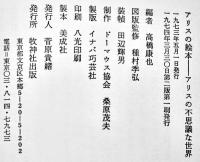 アリスの絵本――アリスの不思議な世界
一九七三年五月一日発行
一九七四年三月三〇日第二版第一刷発行
編者 高橋康也
図版監修 種村季弘
装幀 田辺輝男
制作 ドーマウス協会 桑原茂夫
製版 イナバ巧芸社
印刷 八光印刷
製本 美成社
発行人 菅原貴緒
発行所 牧神社出版
東京都文京区本郷5|20|5|202
電話＝東京〇三・八一四・七九七三